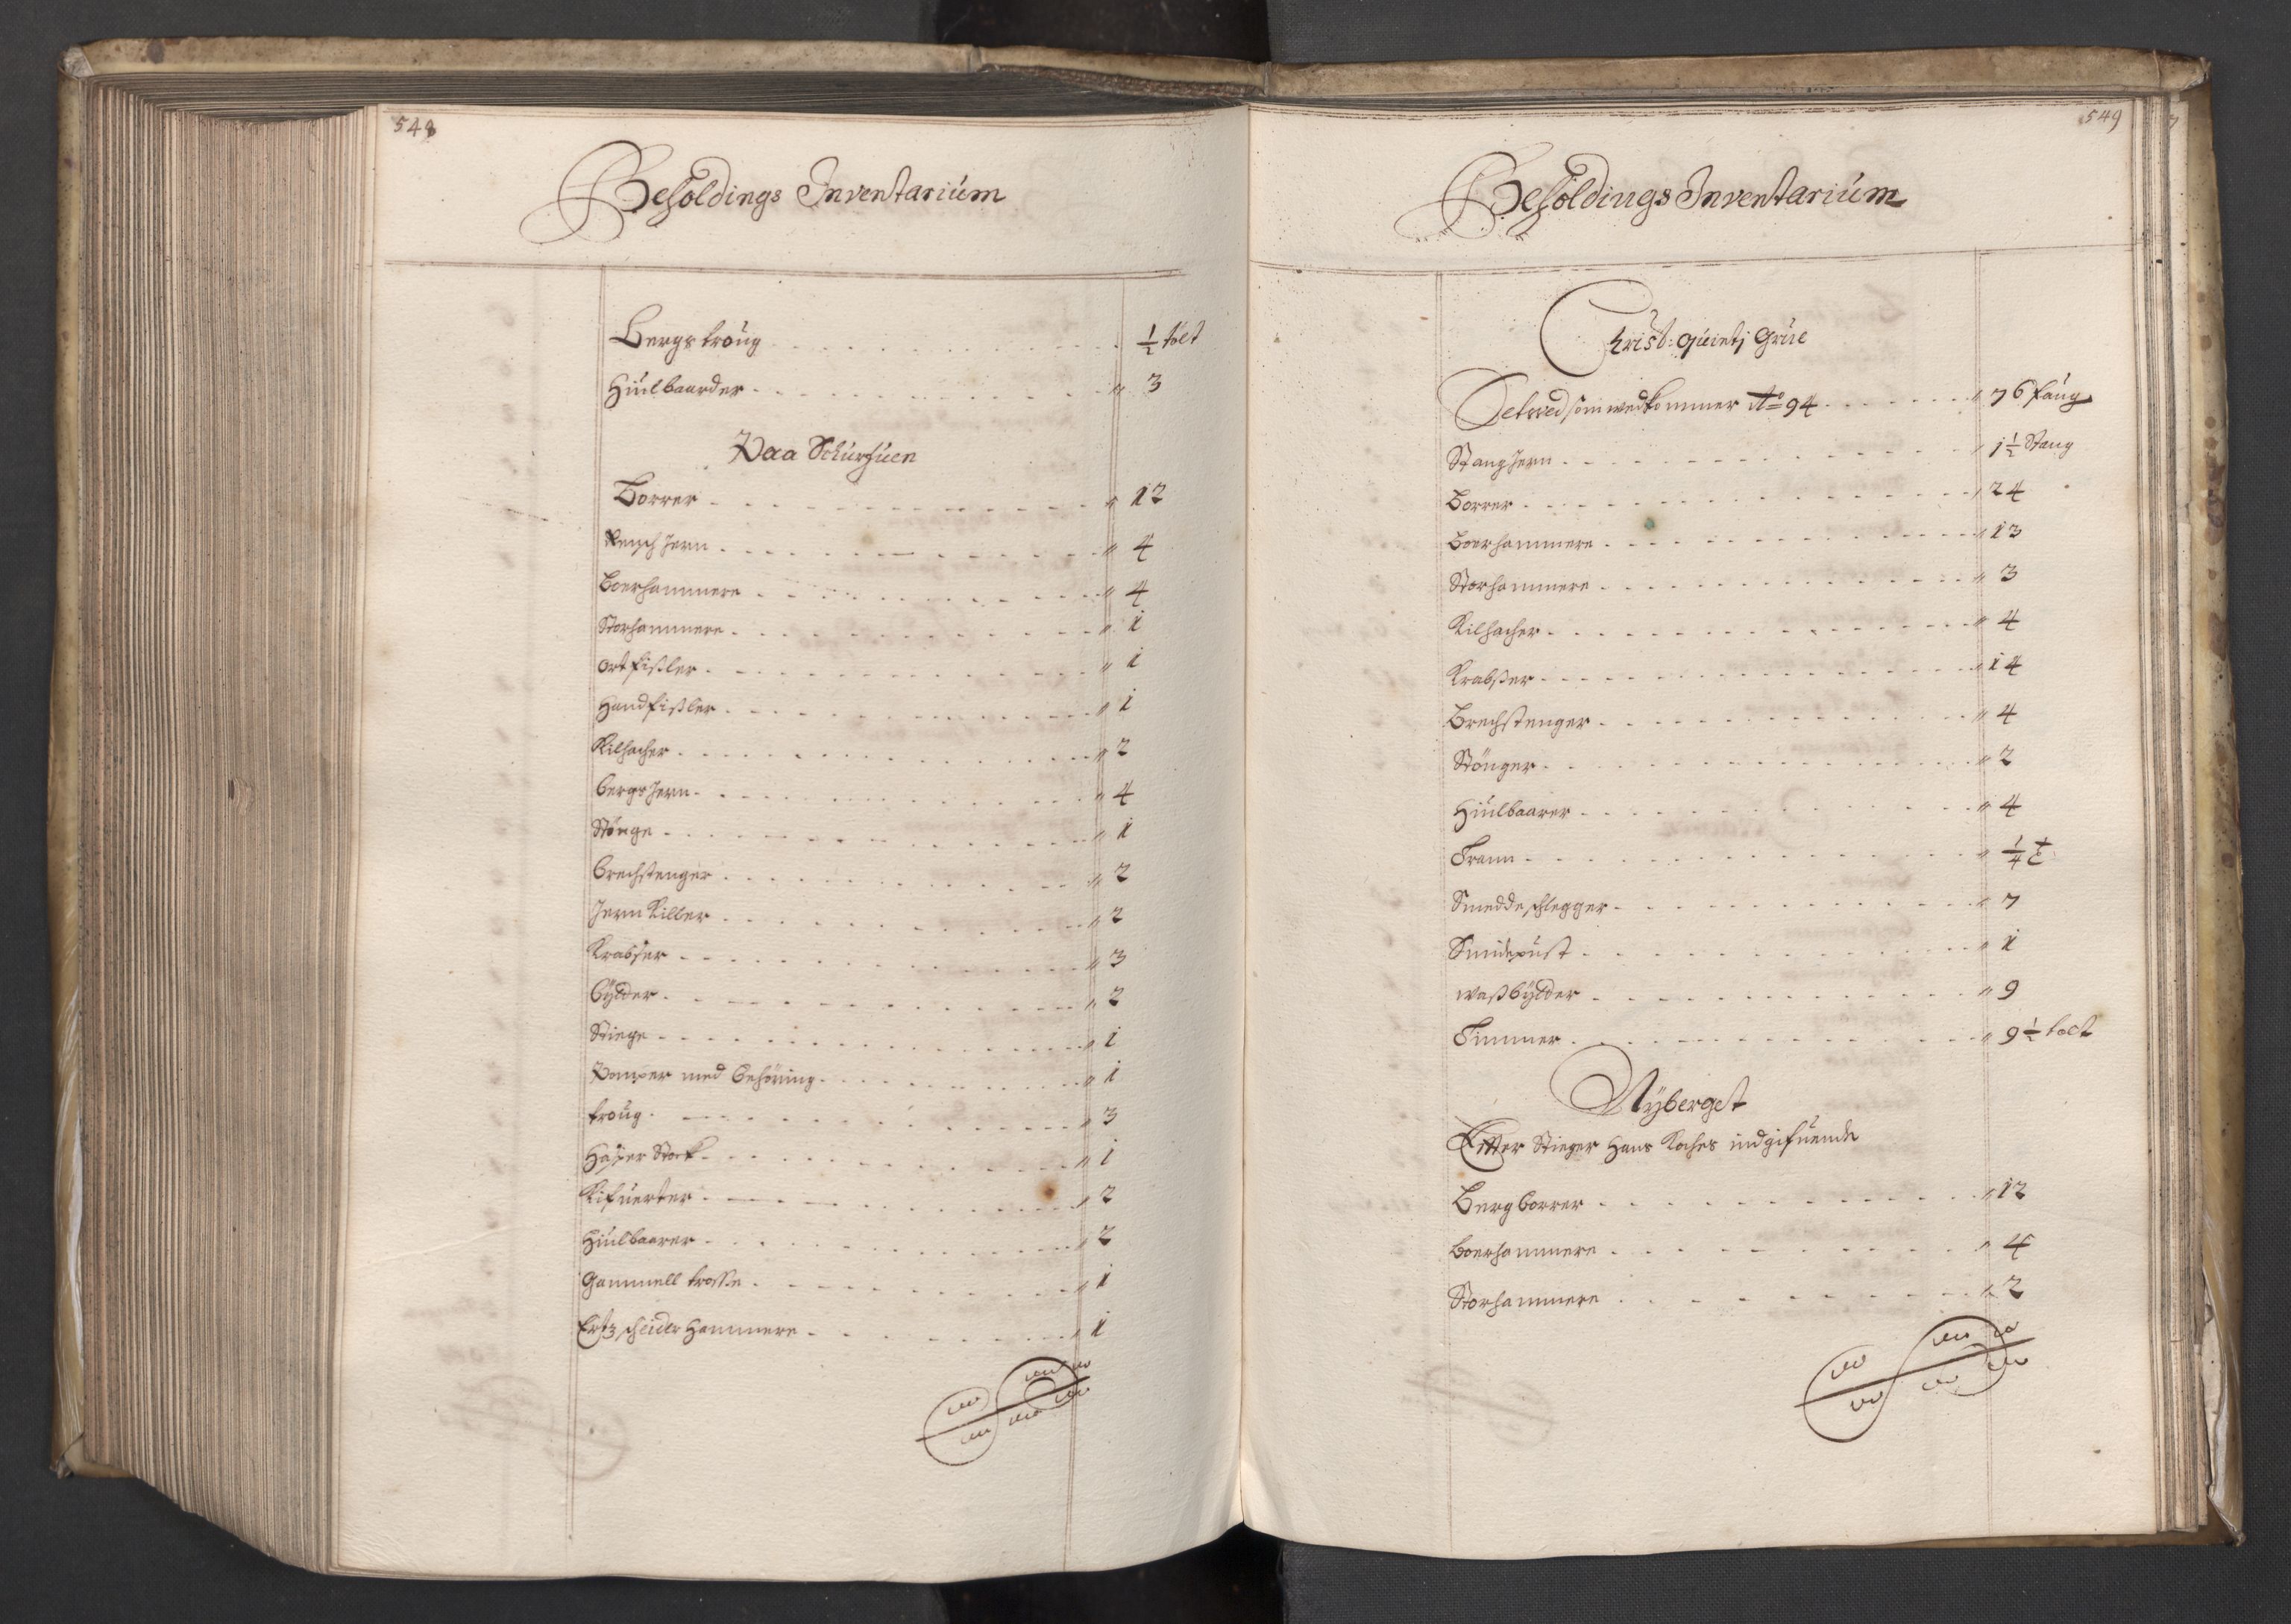 548
Beholdings Inventarium
Bergs troug " ½ tolt
Hiulbaarder " 3
Paa Schurhuen
Borrer " 12
Rensch Jern " 4
Boerhammere " 4
Storhammere " 1
ortfißler " 1
Handfißler " 1
Kilhacher " 2
bergs Jern " 4
Stönge " 1
brechstenger " 2
Jern Killer " 2
Krabßer " 3
bytter " 2
Stiege " 1
Pomper med behöring " 1
troug " 3
Haßer Stock " 1
Kifuerter " 2
Hiulbaarer " 2
Gammell trosse " 1
Ertz scheider Hammere " 1
549
Beholdings Inventarium
Christ: Quintj Grue
Setwed som wedkommer Ao 94 " 76 faug
Stang Jern " 1½ Stang
Borrer " 24
Boerhammere " 13
Storhammere " 3
Kilhacher " 4
Krabßer " 14
Brechstenger " 4
Stönger " 2
Hiulbaarer " 4
Trann " ¼ t
Smedde schlegger " 7
Smidepust " 1
waßbytter " 9
Timmer " 9½ tolt
Nyberget
Efter Stieger Hans Koches indgifuende
Berg borrer " 12
Boerhammere " 4
Storhammere " 2